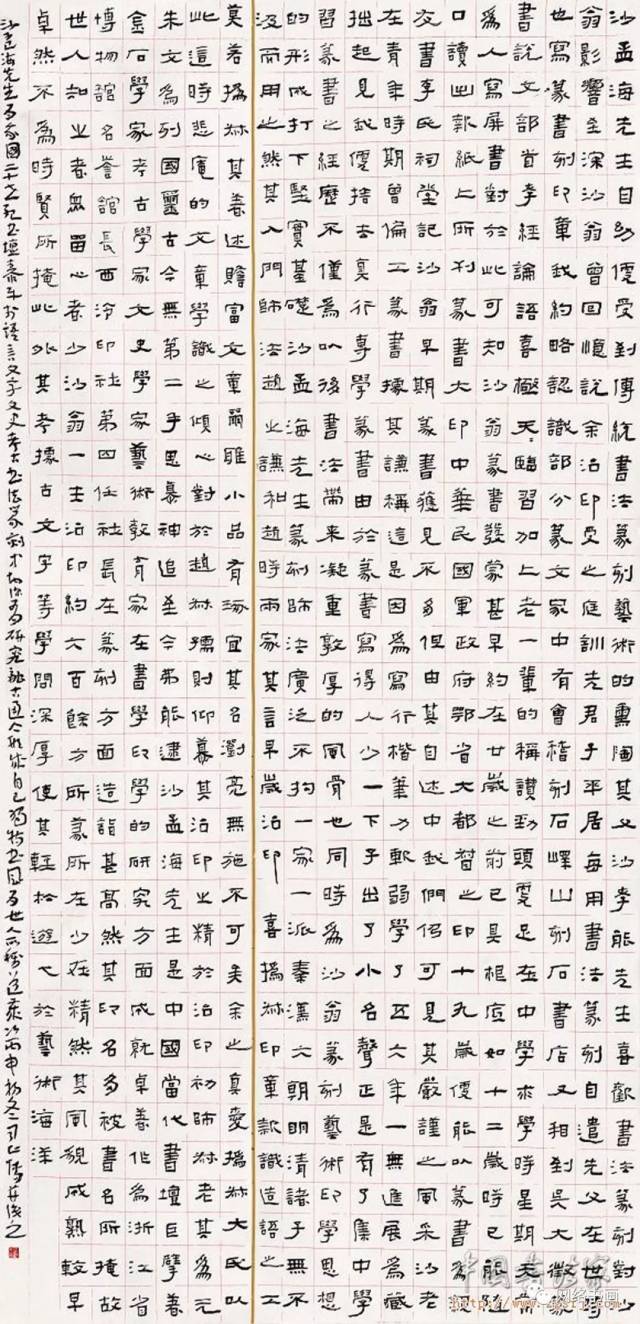 沙孟海先生自幼便受到傳統篆刻藝術的熏陶其父沙孝能先生喜歡書刻對沙
翁影響至深沙翁曾回憶說余治印受之庭訓先君子平居每用書法篆刻自遣先父在世時
也寫篆書刻印章我約略認識部分篆文家中有會稽刻石嶧山刻石書店又相到吳大澂
書說文部首孝經論語喜極天天臨習加上老一輩的稱讚勁頭更足在中學求學時星期天亦
為人寫屏書對於此可知沙翁篆書發蒙甚早約在廿歲之前已具根底如十二三歲時已能隨
口讀出報紙上所刊篆書大印中華民國軍政府鄂省大都督印十九歲便能以篆書為
友李氏祠堂記沙翁早期篆書獲見不多但由其自述中我們仍可見其嚴謹之風采沙老
在青年時期曾偏工篆書據其謙稱這是因為寫行楷筆力軟弱學了五六年一無進展為藏
拙起見我便捨去真行專學篆書由於篆書寫得人少一下子出了小名聲正是有了集中
習篆書之經歷不僅為以後書法帶來凝重敦厚的風骨也同時為沙翁篆刻藝術印學思想
的形成打下堅實基礎沙孟海先生篆刻師法廣泛不拘一家一派秦漢六朝明清諸子無不
汲而用之然其入門師法趙之謙和趙時棡兩家其言早歲治印喜撝叔印章款識造語工
莫若撝叔其春述贍富文章爾雅小品有琢宜其名瀏亮無施不可矣余之真愛撝叔大氐以
此這時悲庵的文章學識之傾心對於趙叔孺則仰慕其治印之精於治印初師叔老其為元
朱文為列國璽古今無第二手思慕神追至今弗能逮沙孟海先生是中國當代書壇巨擘著
金石學家考古學家文史學家藝術教育家在書學印學的研究方面成就卓著作為浙江省
博物館名譽館長西泠印社第四任社長在篆刻方面造詣甚高然其印名多被書名所掩故
世人知之者無留心者少沙翁一生治印約六百餘方所篆所在少在精然其風貌成熟較早
卓然不為時賢所掩此外其考據古文字等學問深厚使其輕松遊弋於藝術海洋
沙孟海先生為我國二十世紀書壇泰斗於語言文字文史考古書法篆刻